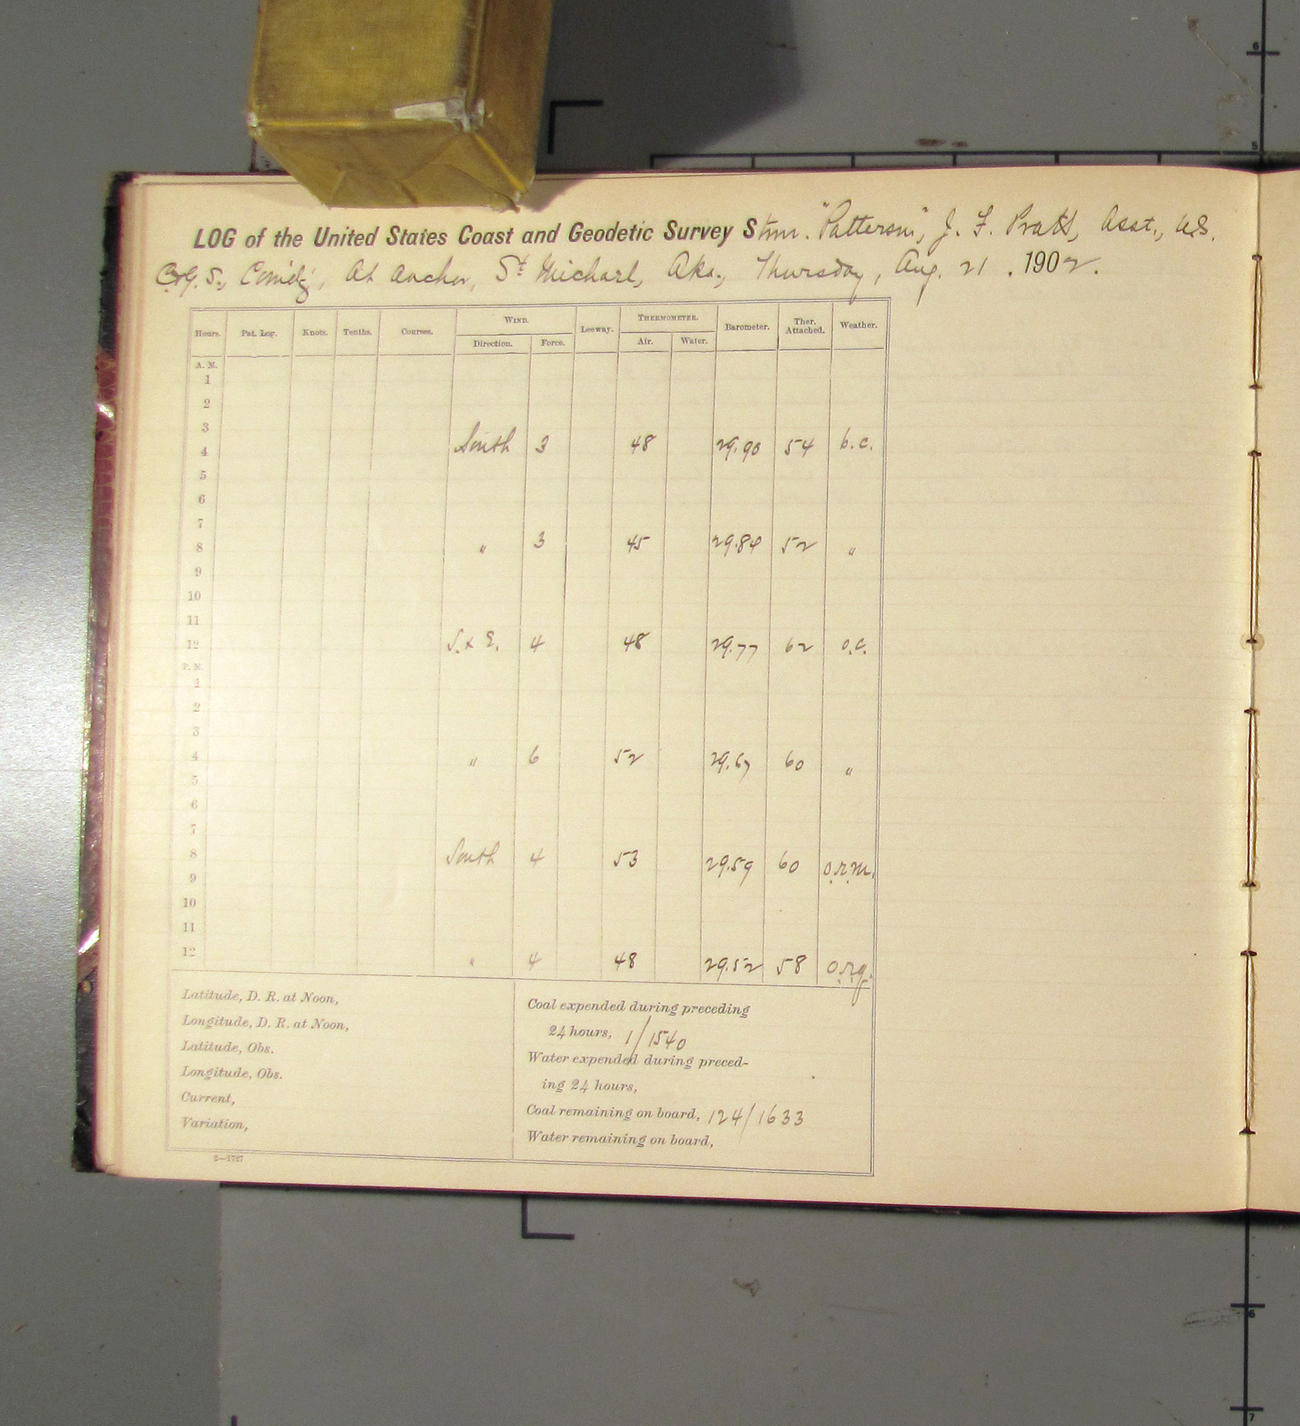 LOG of the United States Coast and Geodetic Survey Stmr. "Patterson", J. F. Pratt, Asst., U.S.
C&G. S., Com'd'g, At anchor, St Michael, Aka., Thursday, Aug. 21, 1902.
Hours. Pat. Log. Knots. Tenths. Courses. WIND. Leeway. THERMOMETER. Barometer. Ther. Attached. Weather.
Direction. Force. Air. Water.
A. M.
1
2
3
4 South 3 48 29.90 54 b.c.
5
6
7
8 " 3 45 29.84 52 "
9
10
11
12 S. x E. 4 48 29.77 62 o.c.
P. M.
1
2
3
4 " 6 52 29.67 60 "
5
6
7
8 South 4 53 29.59 60 o.r.m.
9
10
11
12 " 4 48 29.52 58 o.r.q.
Latitude, D. R. at Noon,
Longitude, D. R. at Noon,
Latitude, Obs.
Longitude, Obs.
Current,
Variation,
Coal expended during preceding
24 hours, 1/1540
Water expended during preced-
ing 24 hours,
Coal remaining on board, 124/1633
Water remaining on board,
2—1727
6
5
6
7